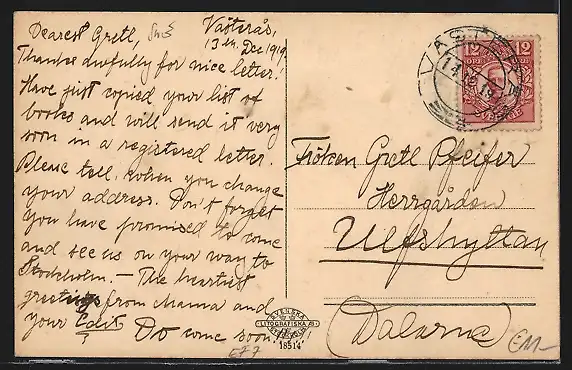 Dearest Gretl,
Västerås,
13th Dec 1919.
Thanks awfully for nice letter!
Have just copied your list of
books and will send it very
soon in a registered letter.
Please tell, when you change
your address. Don't forget
you have promised to come
and see us on your way to
Stockholm. — The heartiest
greetings from mama and
your Edit. Do come soon!!!
12 12
VÄSTERÅS
14 12 19
SVERIGE
Fröken Gretl Pfeifer
Herrgården
Ulfshyttan
(Dalarne)
SVENSKA
LITOGRAFISKA
18514
E77